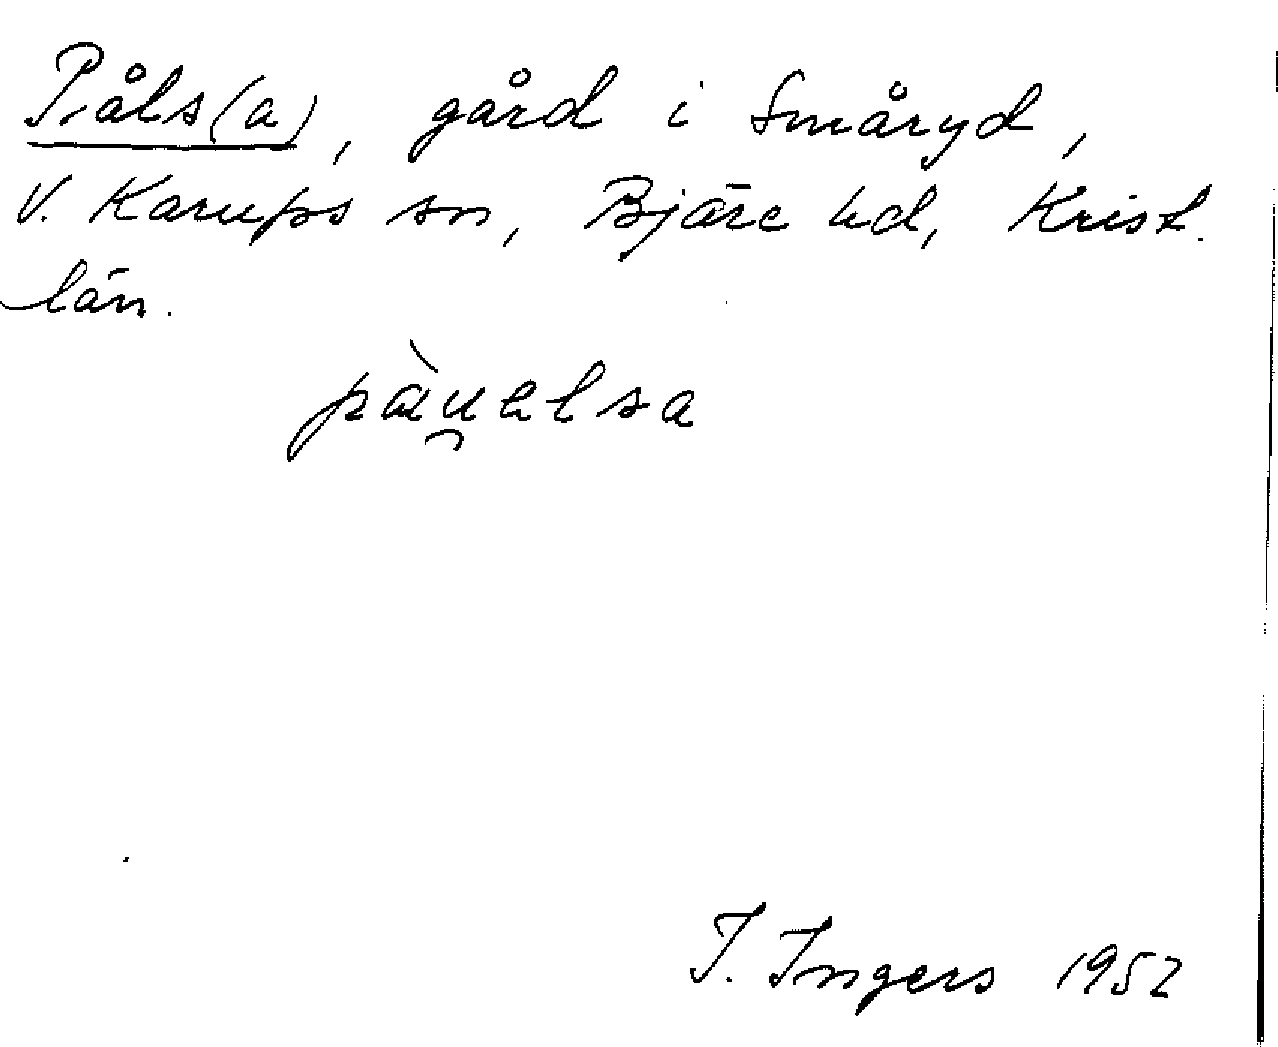 Påls(a), gård i Småryd,
V. Karups sn, Bjäre hd, Krist.
län.
pæ̀u̯əlsa
I. Ingers 1952